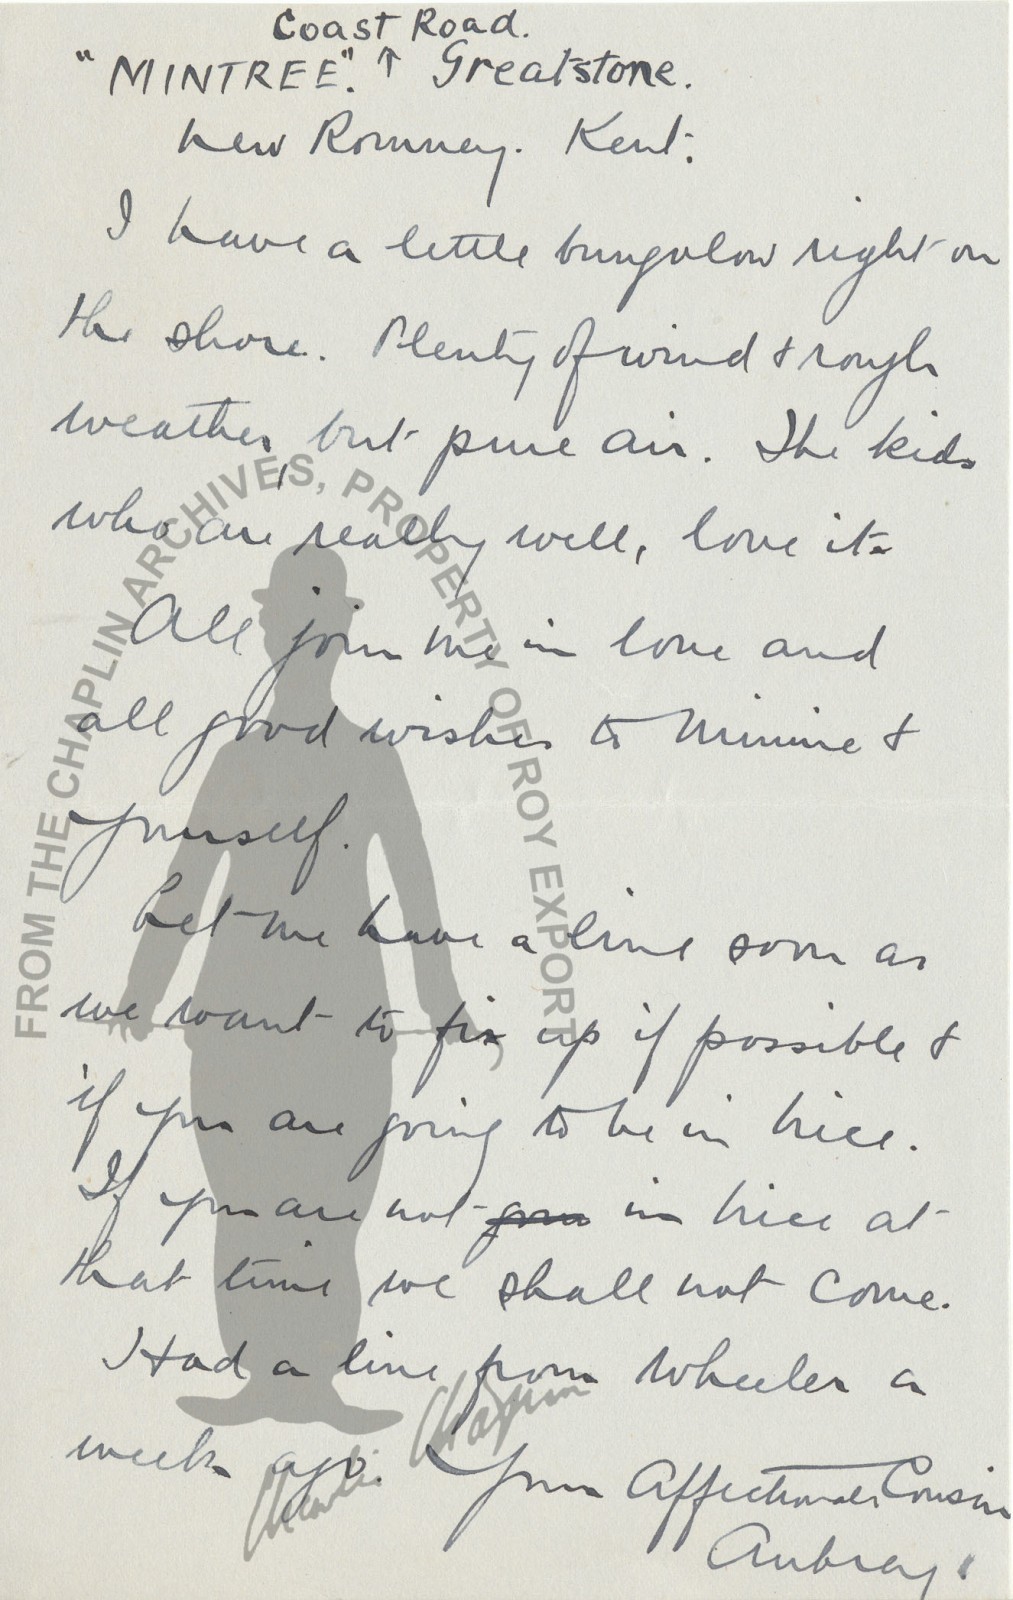 Coast Road.
"MINTREE". ↑ Greatstone.
New Romney. Kent.
I have a little bungalow right on
the shore. Plenty of wind & rough
weather, but pure air. The kids
who are really well, love it.
All join me in love and
all good wishes to Minnie &
yourself.
Let me have a line soon as
we want to fix up if possible &
if you are going to be in Nice.
If you are not in Nice at
that time we shall not come.
Had a line from Wheeler a
week ago. Your Affectionate Cousin
Aubrey.
FROM THE CHAPLIN ARCHIVES, PROPERTY OF ROY EXPORT
Charlie Chaplin